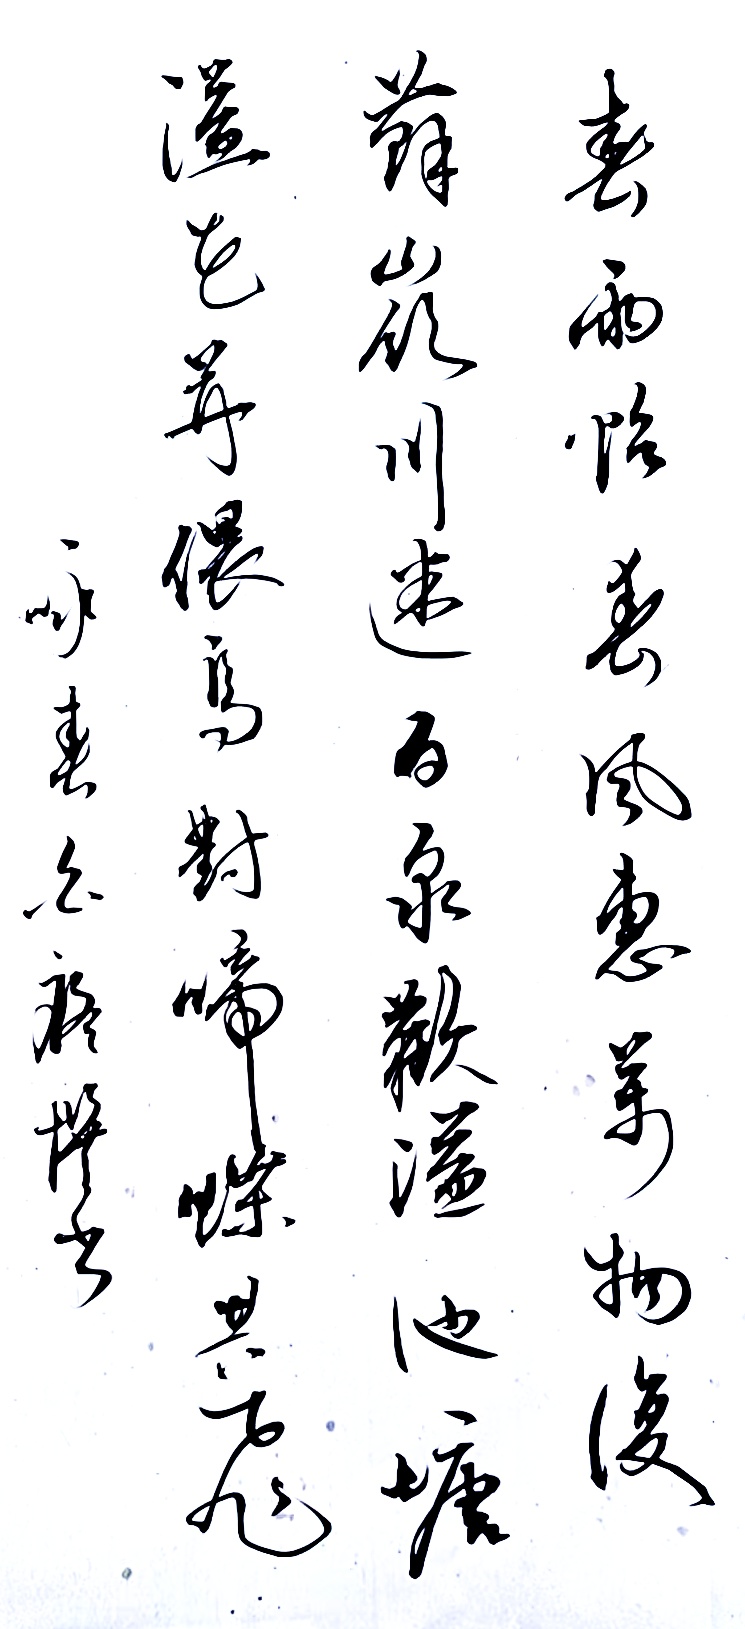 春雨怡春風惠萬物復
蘇嶺川迷百泉歡溢池塘
溢花并偎鳥對啼蝶共飛
咏春撰书